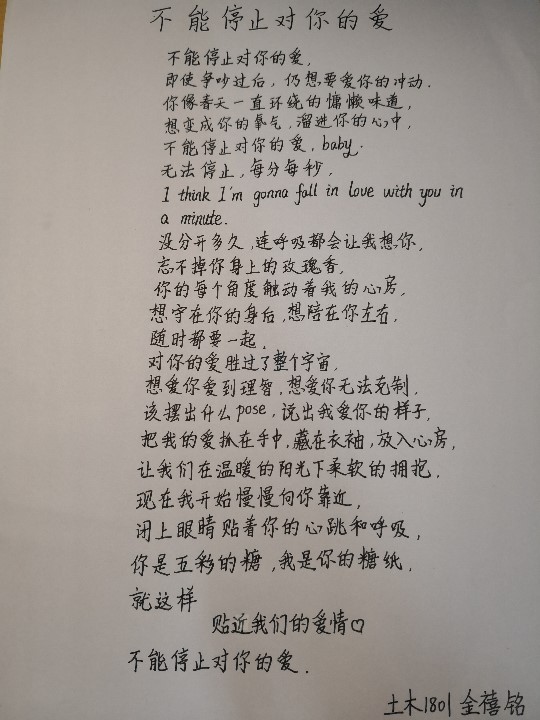 不能停止对你的爱
不能停止对你的爱，
即使争吵过后，仍想要爱你的冲动．
你像春天一直环绕的慵懒味道，
想变成你的氧气，溜进你的心中，
不能停止对你的爱，baby．
无法停止，每分每秒，
I think I'm gonna fall in love with you in
a minute.
没分开多久，连呼吸都会让我想你，
忘不掉你身上的玫瑰香，
你的每个角度触动着我的心房，
想守在你的身后，想陪在你左右，
随时都要一起，
对你的爱胜过了整个宇宙，
想爱你爱到理智，想爱你无法克制，
该摆出什么pose，说出我爱你的样子，
把我的爱抓在手中，藏在衣袖，放入心房，
让我们在温暖的阳光下柔软的拥抱，
现在我开始慢慢向你靠近，
闭上眼睛贴着你的心跳和呼吸，
你是五彩的糖，我是你的糖纸，
就这样
贴近我们的爱情♡
不能停止对你的爱．
土木1801 金禧铭